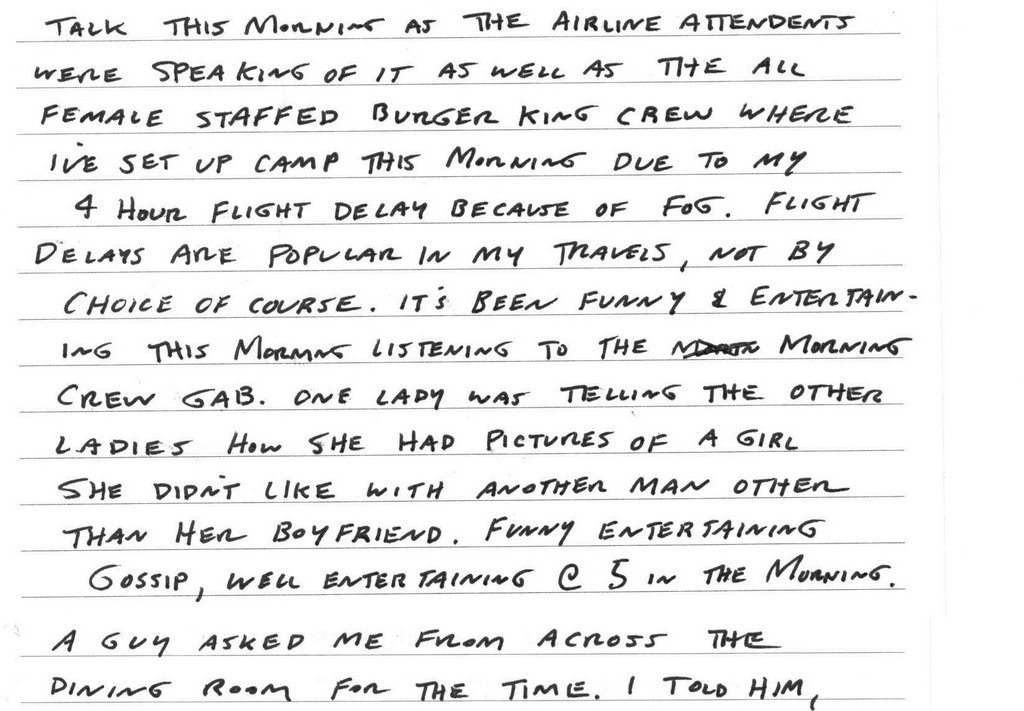 TALK THIS MORNING AS THE AIRLINE ATTENDENTS
WERE SPEAKING OF IT AS WELL AS THE ALL
FEMALE STAFFED BURGER KING CREW WHERE
I'VE SET UP CAMP THIS MORNING DUE TO MY
4 HOUR FLIGHT DELAY BECAUSE OF FOG. FLIGHT
DELAYS ARE POPULAR IN MY TRAVELS, NOT BY
CHOICE OF COURSE. IT'S BEEN FUNNY & ENTERTAIN-
ING THIS MORNING LISTENING TO THE MORNING
CREW GAB. ONE LADY WAS TELLING THE OTHER
LADIES HOW SHE HAD PICTURES OF A GIRL
SHE DIDN'T LIKE WITH ANOTHER MAN OTHER
THAN HER BOYFRIEND. FUNNY ENTERTAINING
GOSSIP, WELL ENTERTAINING @ 5 IN THE MORNING.
A GUY ASKED ME FROM ACROSS THE
DINING ROOM FOR THE TIME. I TOLD HIM,